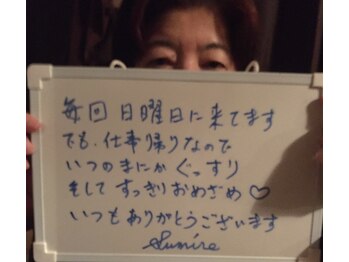 毎回 日曜日に来てます
でも、仕事帰りなので
いつのまにか ぐっすり
そして すっきりおめざめ♡
いつもありがとうございます
Sumire